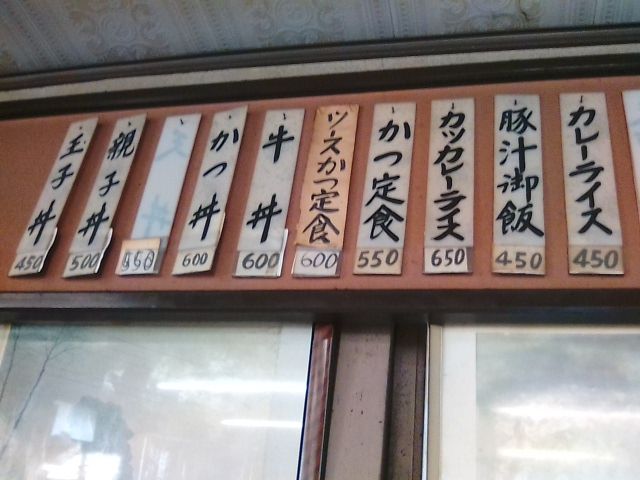 カレーライス
450
豚汁御飯
450
カツカレーライス
650
かつ定食
550
ソースかつ定食
600
牛丼
600
かつ丼
600
天丼
550
親子丼
500
玉子丼
450